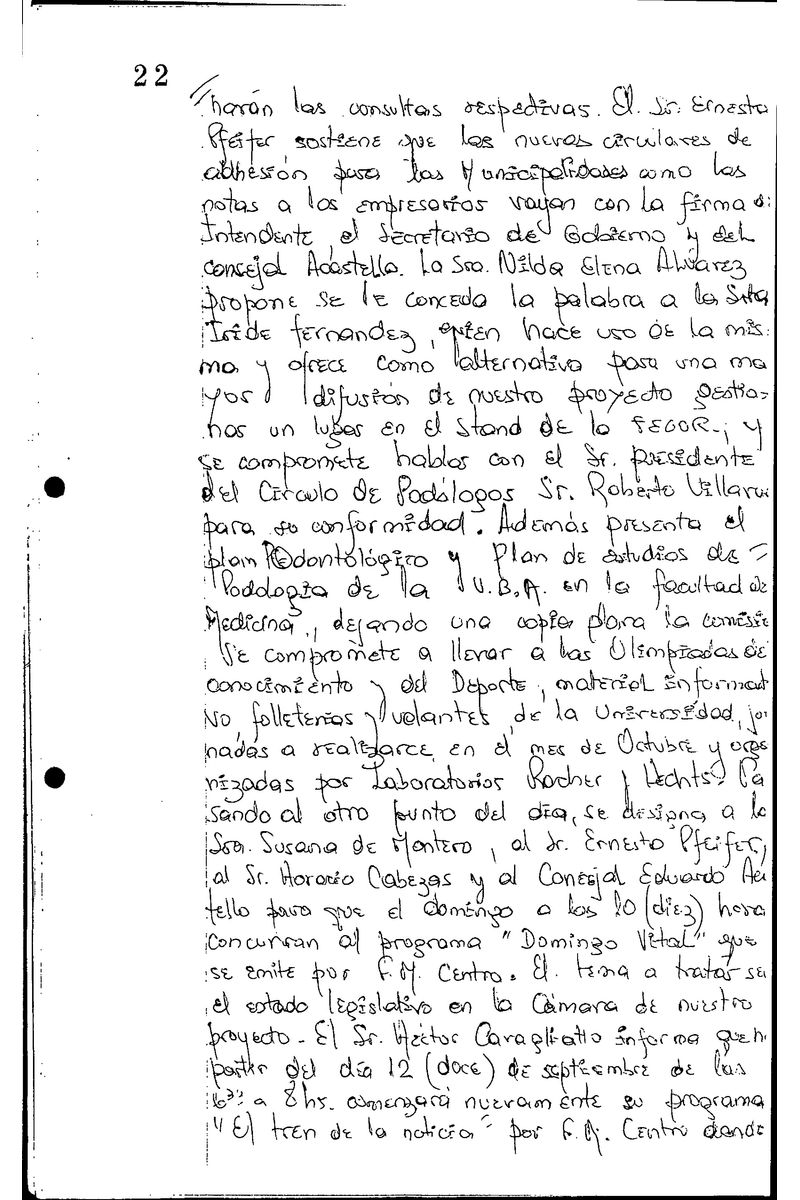 22
harán las consultas respectivas. El Sr. Ernesto
Pfeifer sostiene que las nuevas circulares de
adhesión para las Municipalidades como las
notas a los empresarios vayan con la firma d
Intendente, el Secretario de Gobierno y del
concejal Acastello. La Sra. Nilda Elena Alvarez
propone se le conceda la palabra a la Srta
Iride Fernandez, quien hace uso de la mis
ma y ofrece como alternativa para una ma
yor difusión de nuestro proyecto gestio-
nar un lugar en el Stand de la FECOR., y
se compromete hablar con el Sr. presidente
del Círculo de Podólogos Sr. Roberto Villaru
para su conformidad. Además presenta el
plan Odontológico y Plan de estudios de
Podología de la U.B.A. en la facultad de
Medicina, dejando una copia para la comisió
Se compromete a llevar a las Olimpíadas de
conocimiento y del Deporte, material informat
ivo, folleterías y volantes de la Universidad, jor
nadas a realizarce en el mes de Octubre y orga
nizadas por Laboratorios Rocher y Pa
sando al otro punto del día, se designa a la
Sra. Susana de Montero, al Sr. Ernesto Pfeifer,
al Sr. Horacio Cabezas y al Concejal Eduardo Acs
tello para que el domingo a las 10 (diez) horas
concurran al programa "Domingo Vital" que
se emite por F.M. Centro. El tema a tratar se
el estado legislativo en la Cámara de nuestro
proyecto. El Sr. Héctor Caragliatto informa que
partir del día 12 (doce) de septiembre de las
6³⁰ a 8 hs. comenzará nuevamente su programa
"El tren de la noticia" por F.M. Centro donde